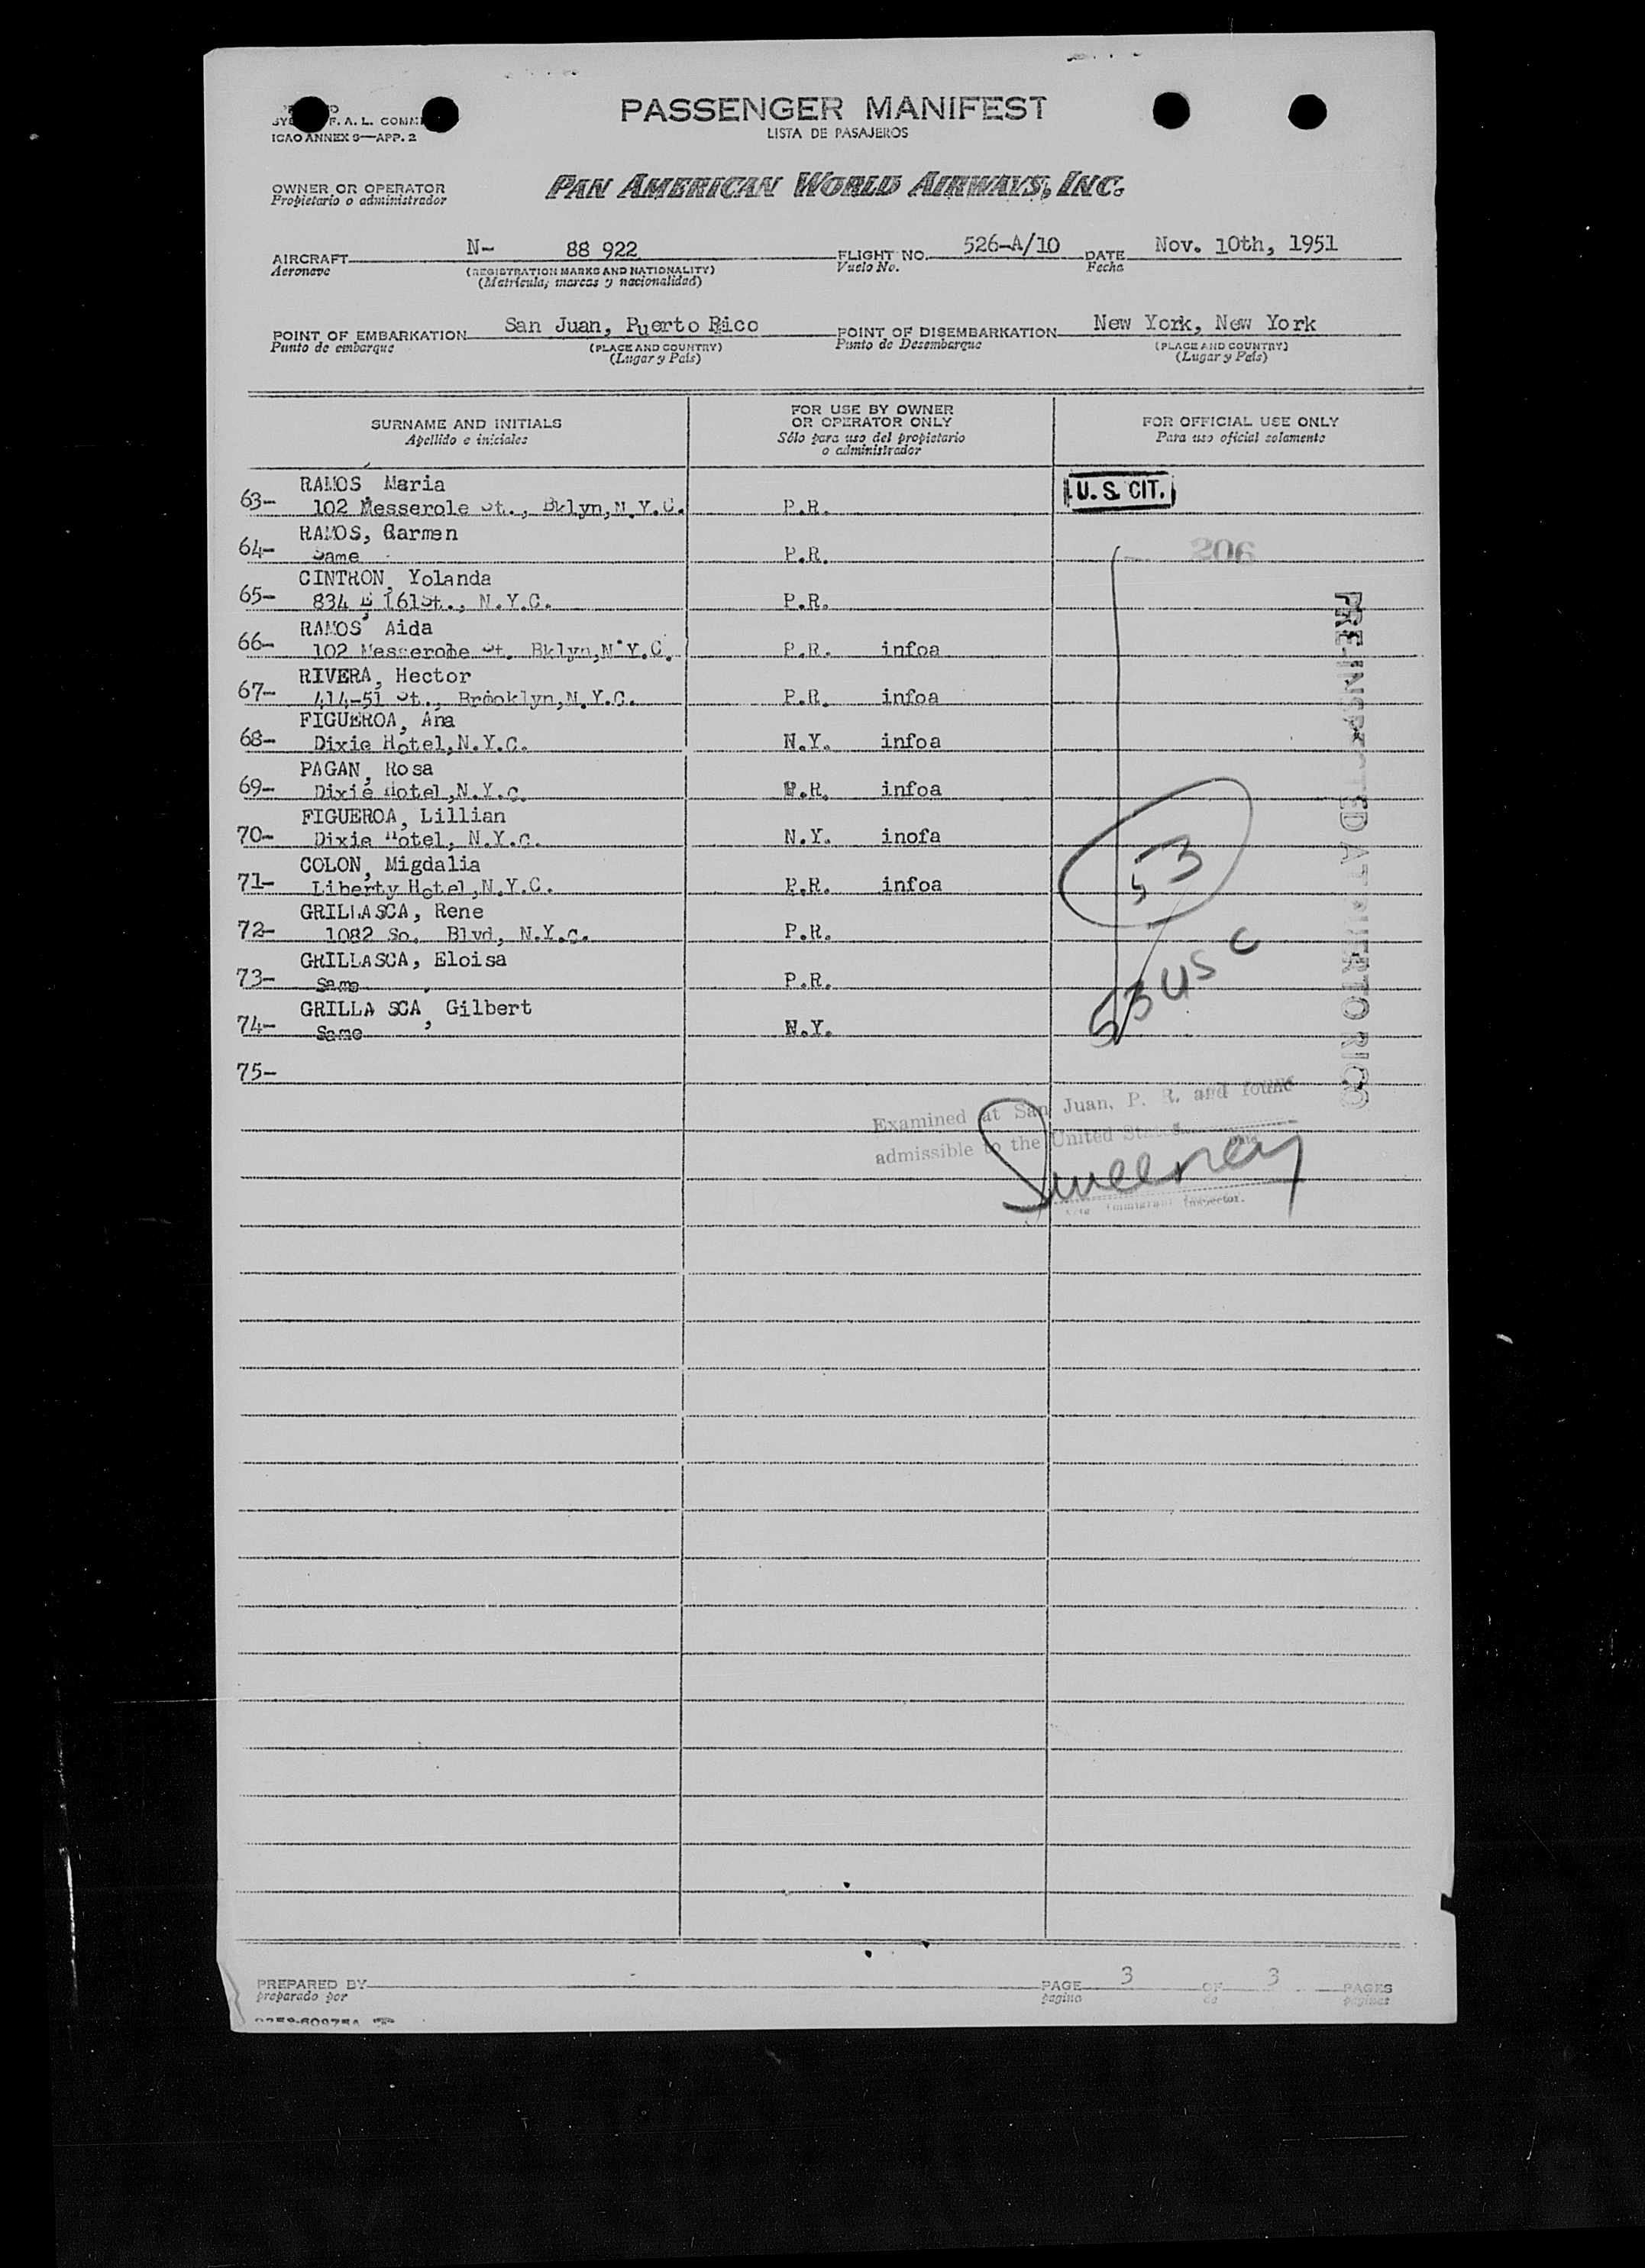 F. A. L. COMM
ICAO ANNEX 9—APP. 2
PASSENGER MANIFEST
LISTA DE PASAJEROS
OWNER OR OPERATOR
Propietario o administrador
PAN AMERICAN WORLD AIRWAYS, INC.
AIRCRAFT N- 88 922 FLIGHT NO. 526-A/10 DATE Nov. 10th, 1951
Aeronave (REGISTRATION MARKS AND NATIONALITY) Vuelo No. Fecha
(Matrícula, marcas y nacionalidad)
POINT OF EMBARKATION San Juan, Puerto Rico POINT OF DISEMBARKATION New York, New York
Punto de embarque (PLACE AND COUNTRY) Punto de Desembarque (PLACE AND COUNTRY)
(Lugar y País) (Lugar y País)
SURNAME AND INITIALS
Apellido e iniciales
FOR USE BY OWNER
OR OPERATOR ONLY
Sólo para uso del propietario
o administrador
FOR OFFICIAL USE ONLY
Para uso oficial solamente
RAMOS Maria
63- 102 Messerole St., Bklyn,N.Y.C. P.R. U. S. CIT.
RAMOS, Carmen
64- Same P.R. 206
CINTRON, Yolanda
65- 834 E 161St., N.Y.C. P.R.
RAMOS, Aida
66- 102 Messerole St. Bklyn,N.Y.C. P.R. infoa
RIVERA, Hector
67- 414-51 St., Brooklyn,N.Y.C. P.R. infoa
FIGUEROA, Ana
68- Dixie Hotel,N.Y.C. N.Y. infoa
PAGAN, Rosa
69- Dixie Hotel,N.Y.C. infoa
FIGUEROA, Lillian
70- Dixie Hotel, N.Y.C. N.Y. inofa
COLON, Migdalia
71- Liberty Hotel,N.Y.C. P.R. infoa
GRILLASCA, Rene
72- 1082 So. Blvd, N.Y.C. P.R.
GRILLASCA, Eloisa
73- Same P.R.
GRILLA SCA, Gilbert
74- Same N.Y.
75-
53
53 USC
PRE-INSPECTED AT PUERTO RICO
Examined at San Juan, P. R. and found
admissible to the United States
Date
Sweeney
Immigrant Inspector.
PREPARED BY PAGE 3 OF 3 PAGES
preparado por pagina de paginas